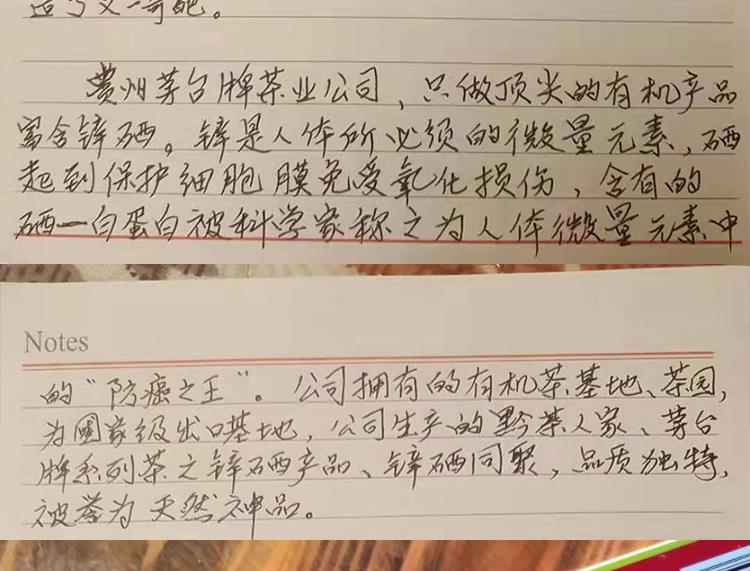 造了又一奇葩。
贵州茅台牌茶业公司，只做顶尖的有机产品
富含锌硒。锌是人体所必须的微量元素，硒
起到保护细胞膜免受氧化损伤，含有的
硒一白蛋白被科学家称之为人体微量元素中
Notes
的“防癌之王”。公司拥有的有机茶基地、茶园，
为国家级出口基地，公司生产的黔茶人家、茅台
牌系列茶之锌硒产品、锌硒同聚，品质独特，
被誉为天然神品。